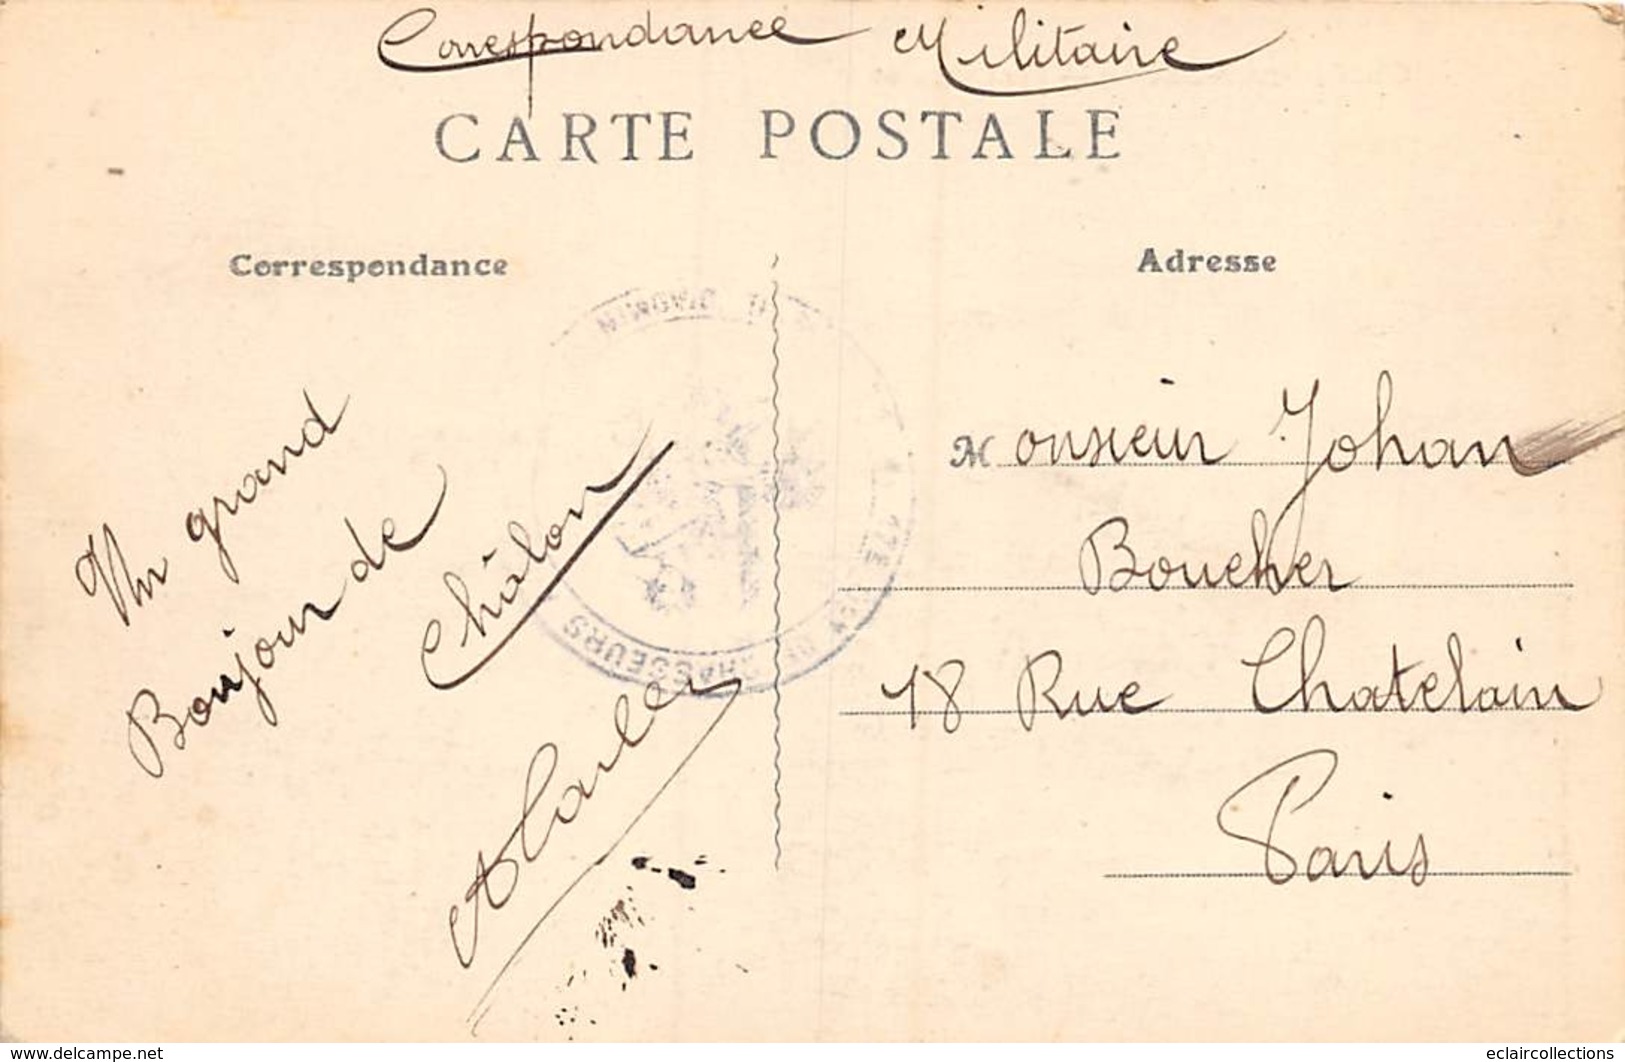 Correspondance Militaire
CARTE POSTALE
Correspondance
Adresse
Un grand
Bonjour de
Châlon
Monsieur Johan
Boucher
18 Rue Chatelain
Paris
CHASSEURS
www.delcampe.net
eclaircollections